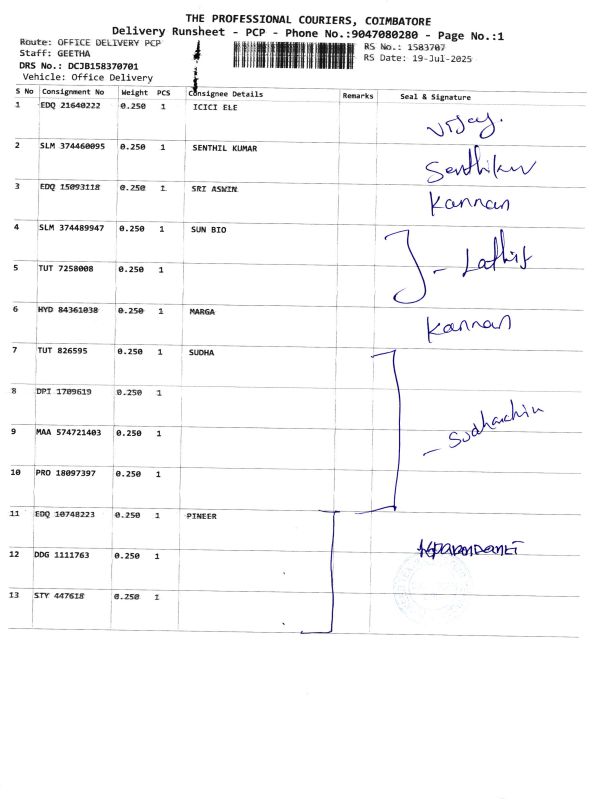 THE PROFESSIONAL COURIERS, COIMBATORE
Delivery Runsheet - PCP - Phone No.:9047080280 - Page No.:1
Route: OFFICE DELIVERY PCP RS No.: 1583707
Staff: GEETHA RS Date: 19-Jul-2025
DRS No.: DCJB158370701
Vehicle: Office Delivery
S No Consignment No Weight PCS Consignee Details Remarks Seal & Signature
1 EDQ 21640222 0.250 1 ICICI ELE Vijay.
2 SLM 374460095 0.250 1 SENTHIL KUMAR
3 EDQ 15093118 0.250 1 SRI ASWIN Kannan
4 SLM 374489947 0.250 1 SUN BIO
5 TUT 7258008 0.250 1
6 HYD 84361038 0.250 1 MARGA Kannan
7 TUT 826595 0.250 1 SUDHA
8 DPI 1709619 0.250 1
9 MAA 574721403 0.250 1
10 PRO 18097397 0.250 1
11 EDQ 10748223 0.250 1 PINEER
12 DDG 1111763 0.250 1
13 STY 447618 0.250 1